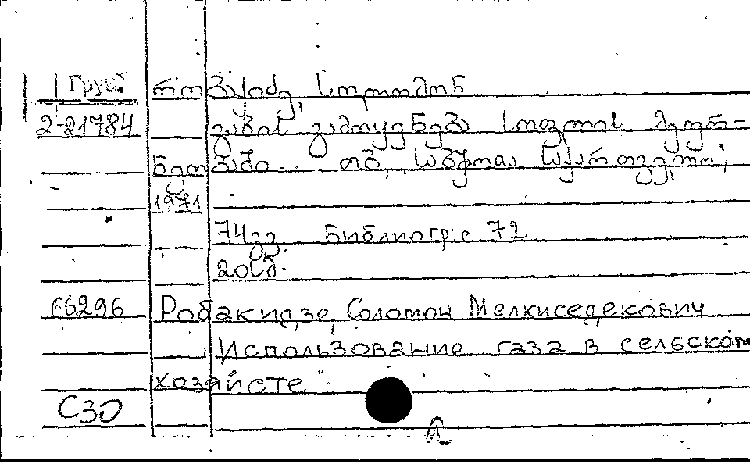 Груз რობაქიძე, სოლომონ
2-21784 გაზის გამოყენება სოფლის მეურ-
ნეობაში. თბ., საბჭოთა საქართველო,
1971
74 გვ. Библиогр: с 72
20 კპ.
66296 Робакидзе, Соломон Мелкиседекович
Использование газа в сельском
хозяйсте
С30